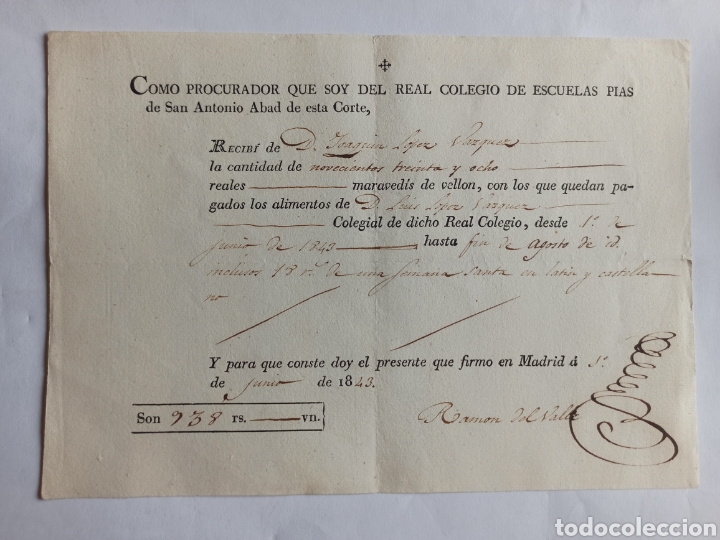 COMO PROCURADOR QUE SOY DEL REAL COLEGIO DE ESCUELAS PIAS
de San Antonio Abad de esta Corte,
RECIBÍ de D. Joaquin Lopez Vazquez
la cantidad de novecientos treinta y ocho
reales maravedís de vellon, con los que quedan pa-
gados los alimentos de D. Luis Lopez Vazquez
Colegial de dicho Real Colegio, desde 1.º de
junio de 1843 hasta fin de agosto de id.
inclusos 18 r.s de una semana santa en latin y castella
no
Y para que conste doy el presente que firmo en Madrid á 1.º
de junio de 1843.
Son 938 rs. vn.
Ramon del Valle
todocoleccion